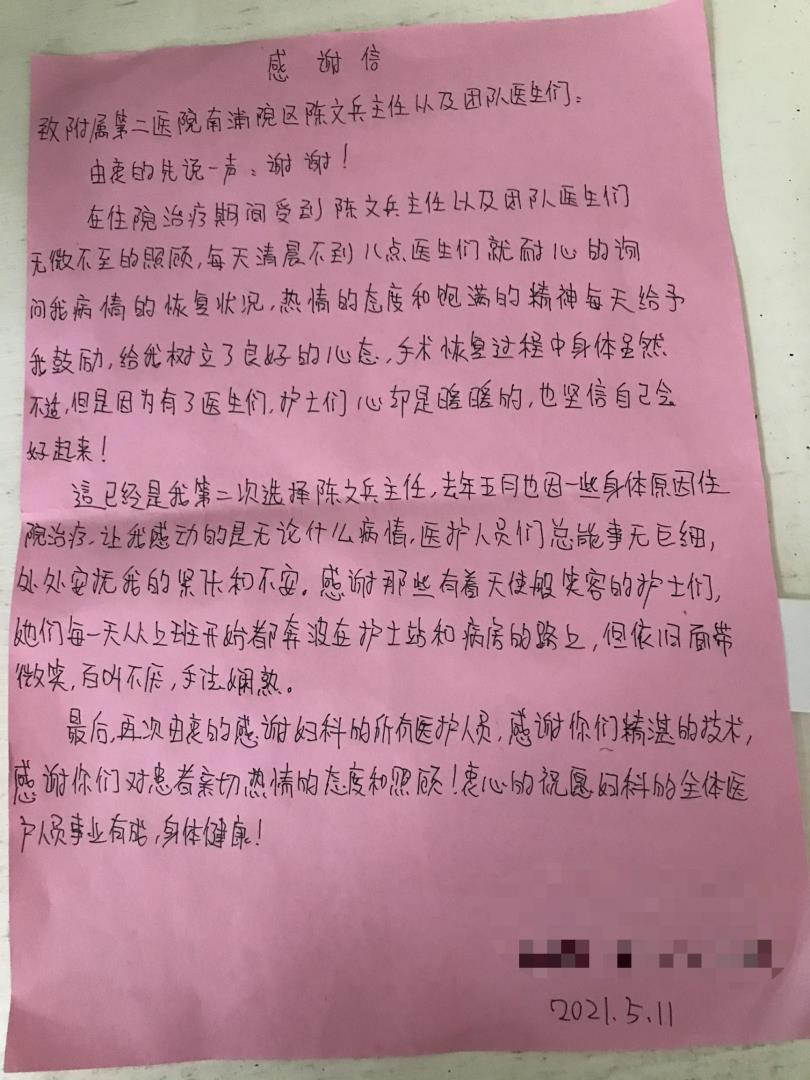 感谢信
致附属第二医院南浦院区陈文兵主任以及团队医生们：
由衷的先说一声：谢谢！
在住院治疗期间受到陈文兵主任以及团队医生们
无微不至的照顾，每天清晨不到八点医生们就耐心的询
问我病情的恢复状况，热情的态度和饱满的精神每天给予
我鼓励，给我树立了良好的心态，手术恢复过程中身体虽然
不适，但是因为有了医生们，护士们心却是暖暖的，也坚信自己会
好起来！
這已经是我第二次选择陈文兵主任，去年五月也因一些身体原因住
院治疗，让我感动的是无论什么病情，医护人员们总能事无巨细，
处处安抚我的紧张和不安。感谢那些有着天使般笑容的护士们，
她们每一天从上班开始都奔波在护士站和病房的路上，但依旧面带
微笑，百叫不厌，手法娴熟。
最后，再次由衷的感谢妇科的所有医护人员，感谢你们精湛的技术，
感谢你们对患者亲切热情的态度和照顾！衷心的祝愿妇科的全体医
护人员事业有成，身体健康！
2021.5.11